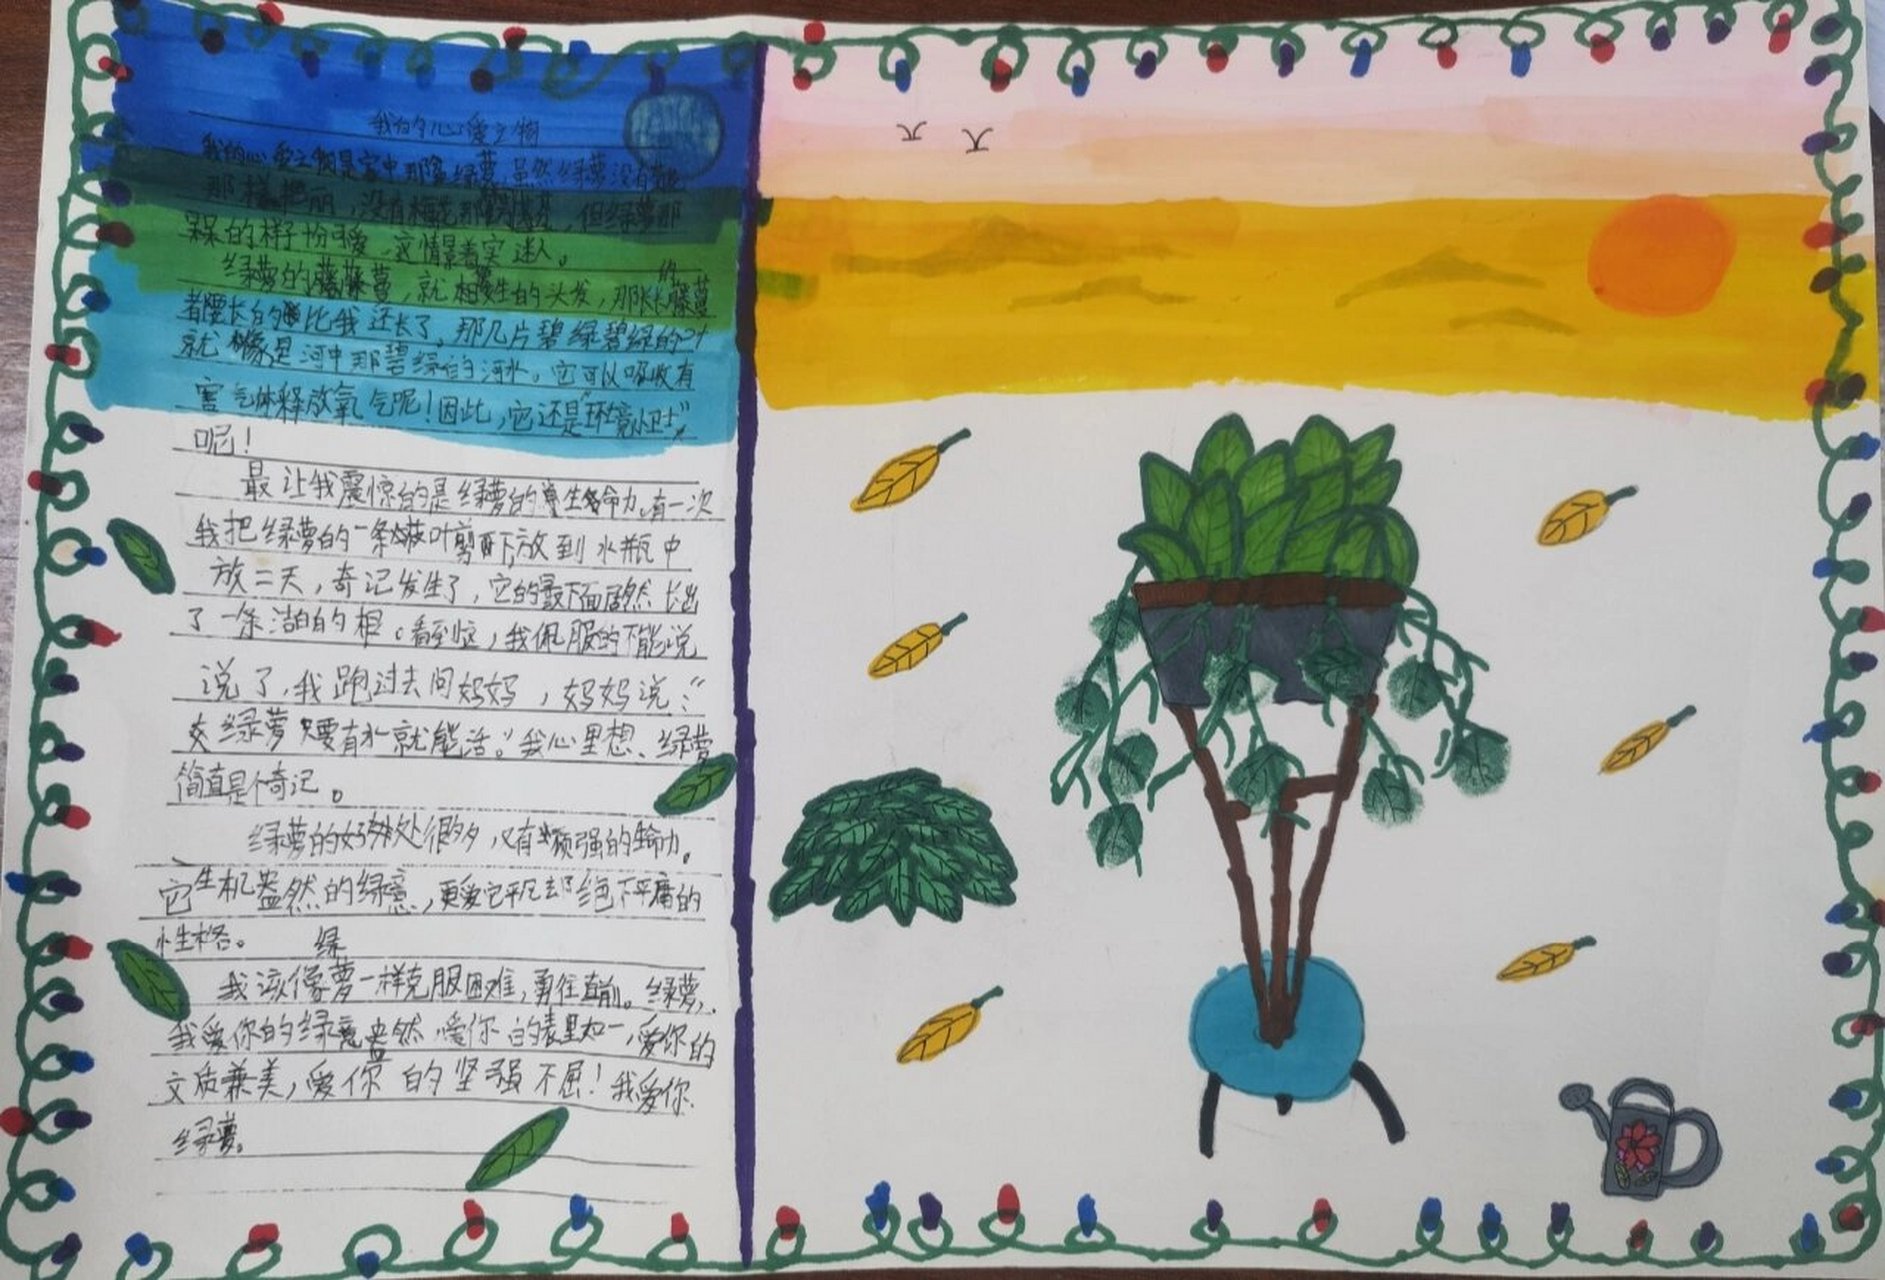 我的心爱之物
我的心爱之物是家中那盆绿萝,虽然绿萝没有
那样艳丽,没有梅花那,但绿萝那
呆呆的样子份可爱,这情景着实迷人。
绿萝的藤萝,就女生的头发,那长
长的比我还长了,那几片碧绿碧绿的叶
就像是河中那碧绿的河水。它可以吸收有
害气体释放氧气呢!因此,它还是“环境卫士”
呢!
最让我震惊的是绿萝的生命力。有一次
我把绿萝的一条叶剪下放到水瓶中
放二天,奇记发生了,它的最下面居然长出
了一条洁白的根。看到这,我佩服的不能说
说了,我跑过去问妈妈,妈妈说:“
绿萝只要有水就能活。”我心里想、绿萝
简直是个奇记。
绿萝的好处很多,又有顽强的生命力。
它生机盎然的绿意,更爱它平凡却绝不平庸的
性格。
我该像绿萝一样克服困难,勇往直前。绿萝,
我爱你的绿意盎然,爱你的表里如一,爱你的
文质兼美,爱你的坚强不屈!我爱你
绿萝。